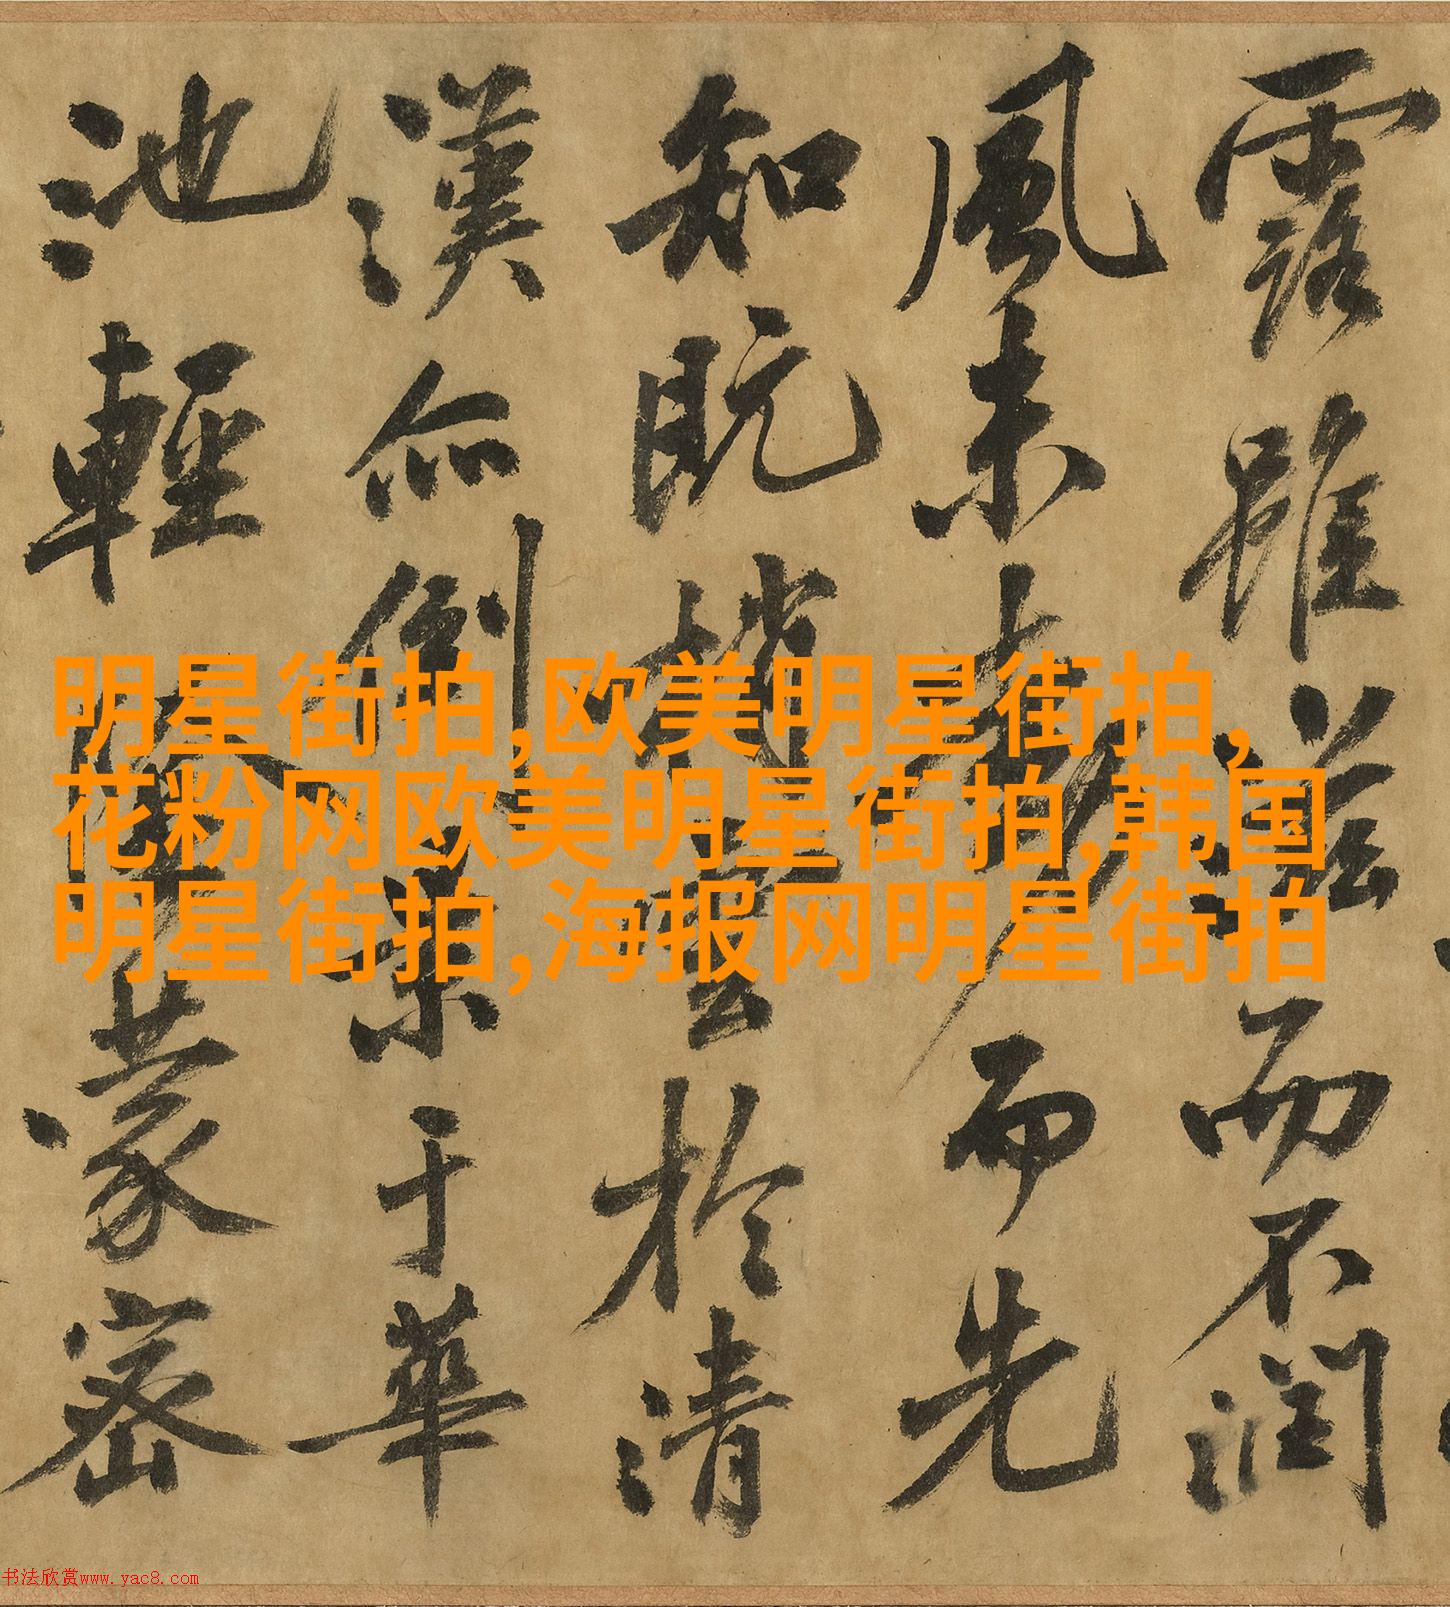 露雖滋而不潤
風未而先
知既梢雲於清
漢亦倒景于華
池輕蒙密
明星街拍,欧美明星街拍,
花粉网欧美明星街拍,韩国
明星街拍,海报网明星街拍
书法欣赏www.yac8.com